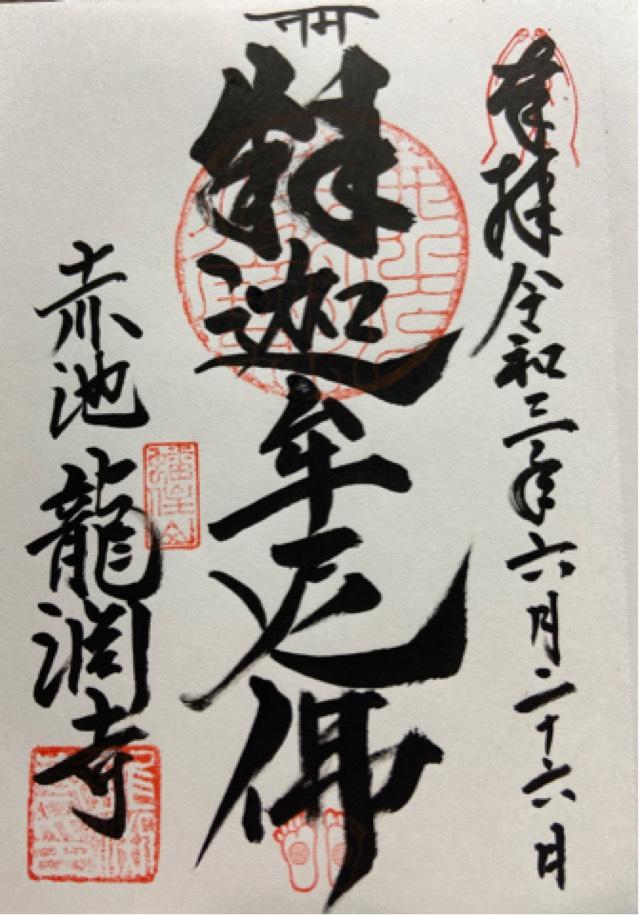 奉拝 令和三年六月二十六日
नम
釋迦牟尼佛
赤池 龍渕寺